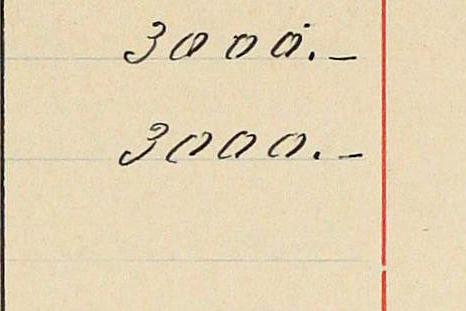 3000.-
3000.-